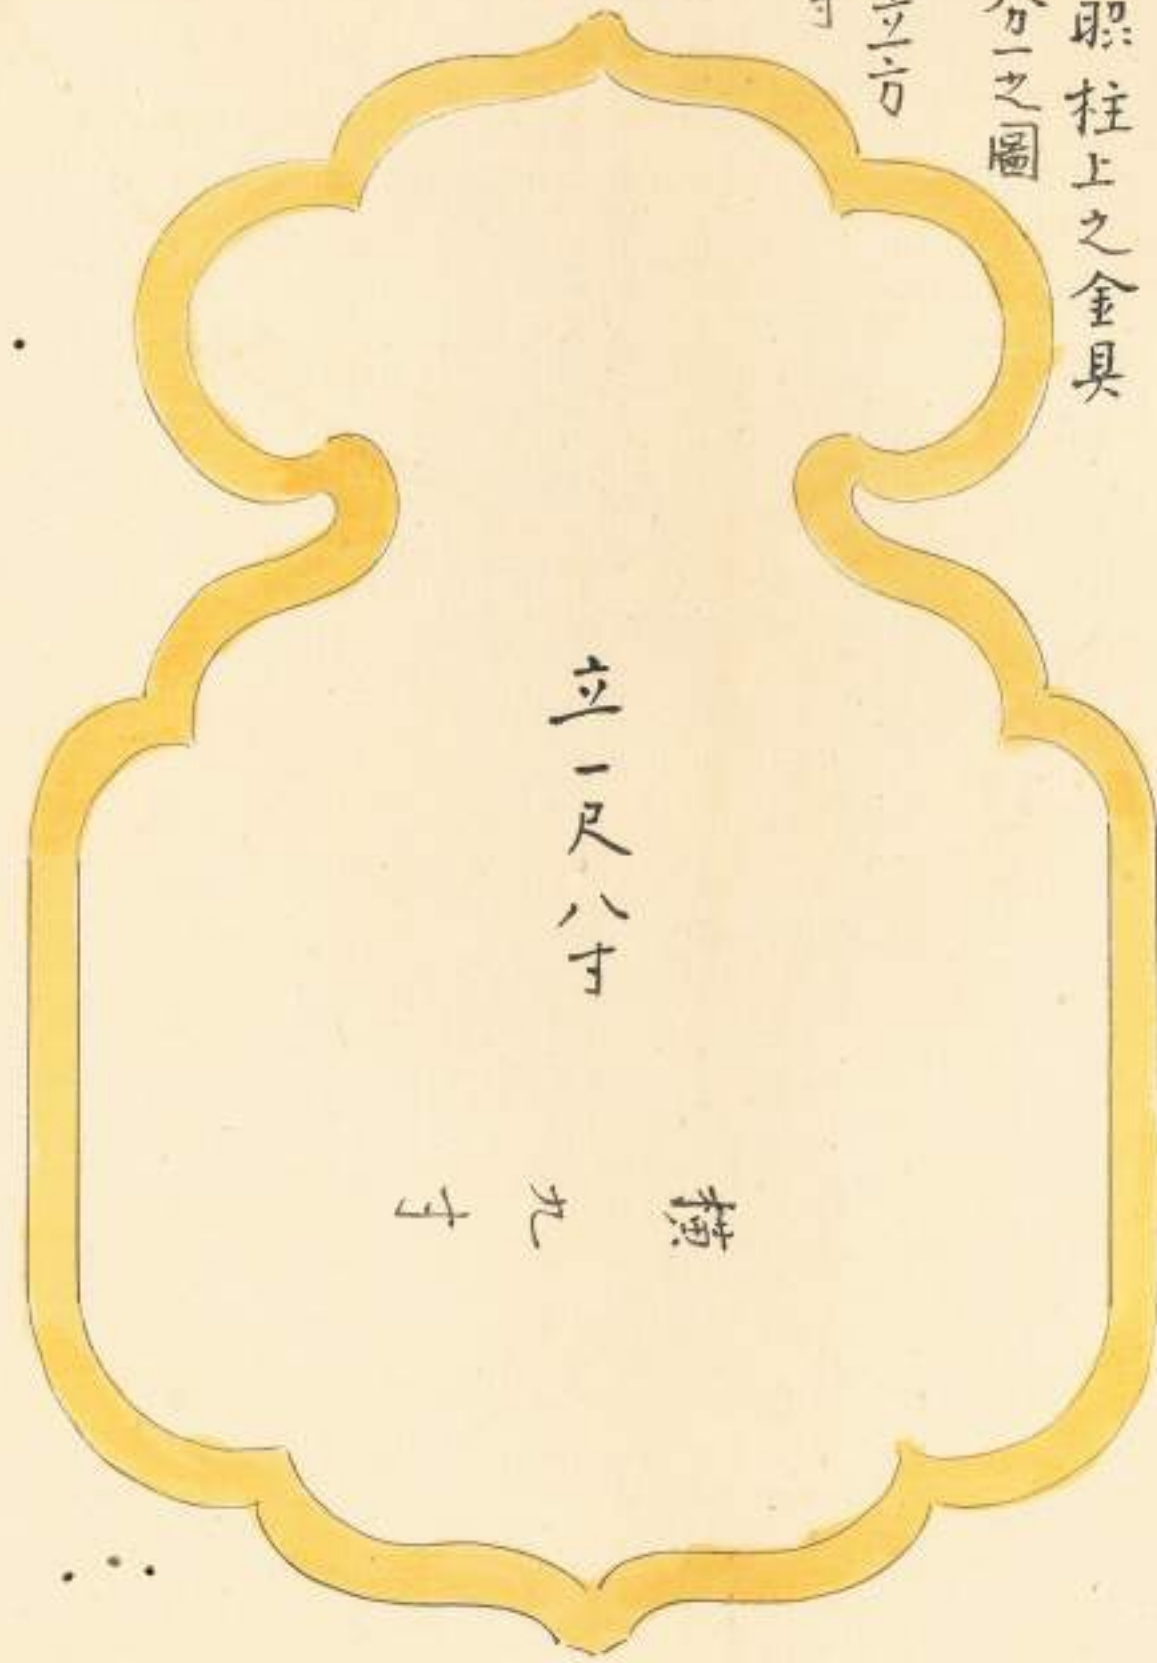 照柱上之金具
分一之圖
立方
寸
立一尺八寸
横九寸